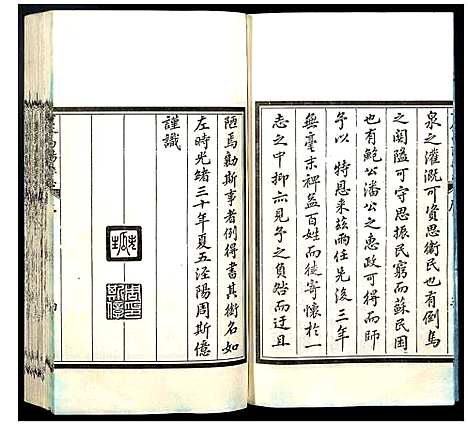 泉之灌溉可資思衛民也有倒馬
之關隘可守思振民窮而蘇民困
也有鮑公潘公之惠政可得而師
予以 特恩来茲兩任先後三年
無毫末裨益百姓而徒寄懷於一
志之中抑亦見予之負咎而迂且
陋焉勷斯事者例得書其銜名如
左時光緒三十年夏五涇陽周斯億
謹識
周斯億